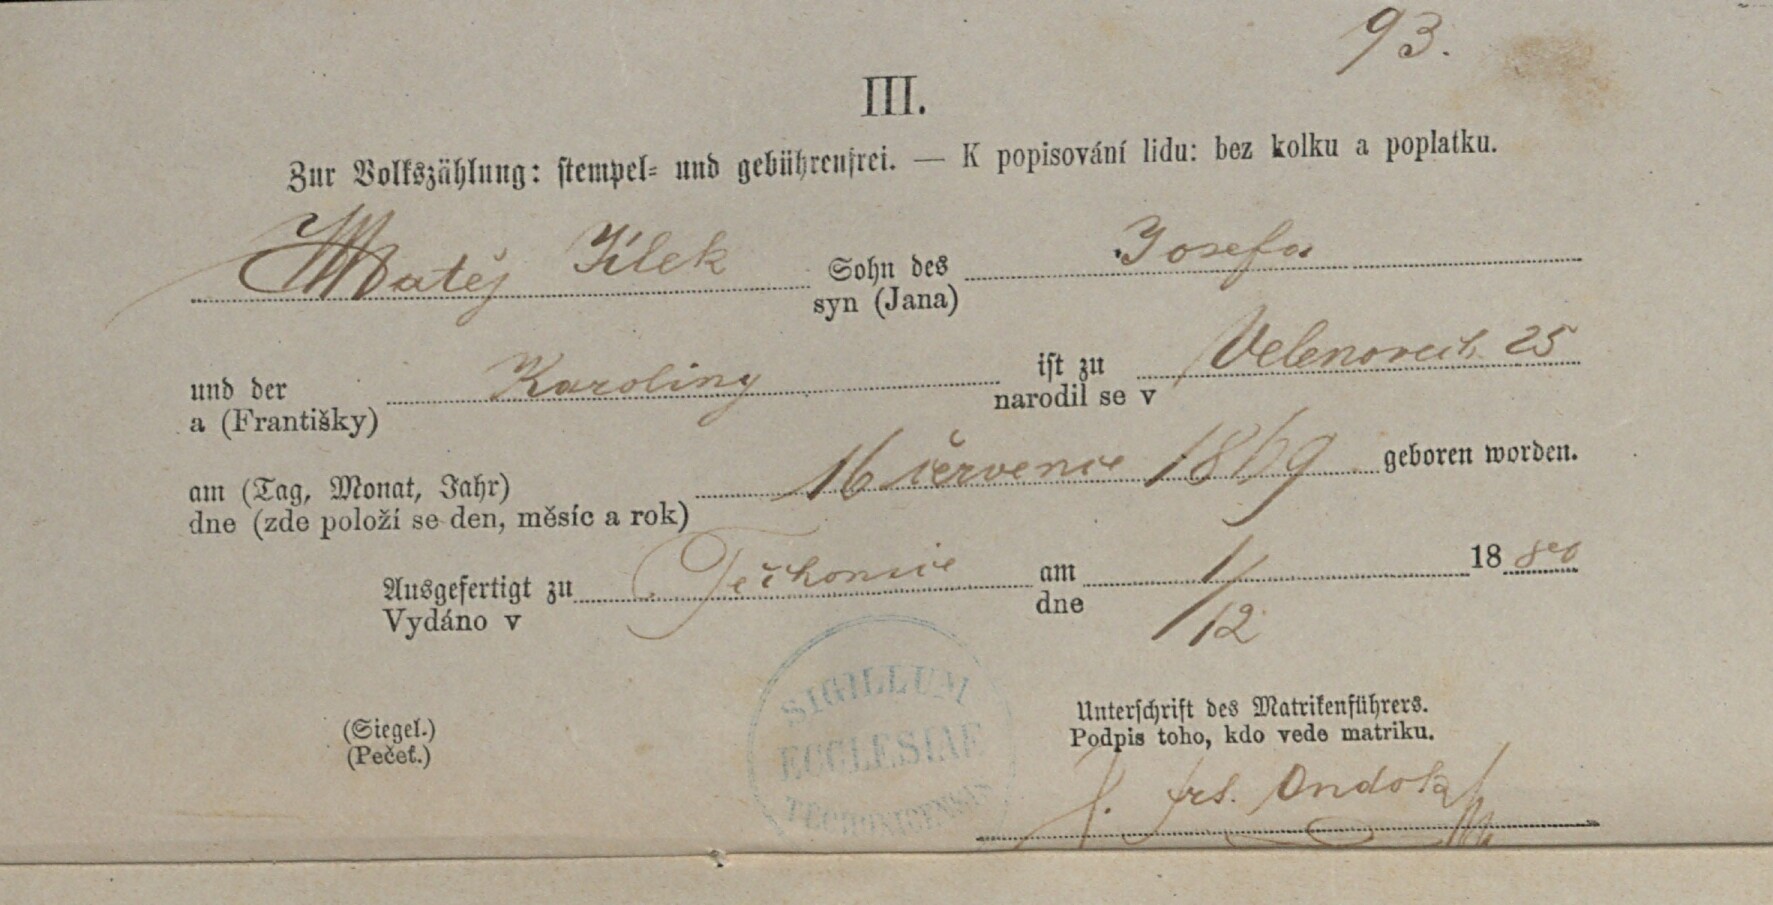 93.
III.
Zur Volkszählung: stempel- und gebührenfrei. — K popisování lidu: bez kolku a poplatku.
Matěj Jílek Sohn des Josefa
syn (Jana)
und der Karoliny ist zu Velenovech 25
a (Františky) narodil se v
am (Tag, Monat, Jahr) 16 července 1869 geboren worden.
dne (zde položí se den, měsíc a rok)
Ausgefertigt zu Těchonice am 1/12 1880
Vydáno v dne
SIGILLUM
ECCLESIAE
(Siegel.) Unterschrift des Matrikenführers.
(Pečeť.) Podpis toho, kdo vede matriku.